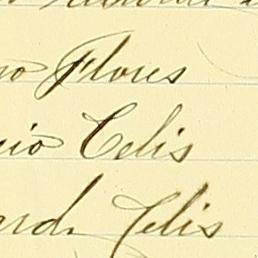 no Flores
cio Celis
ard. Celis